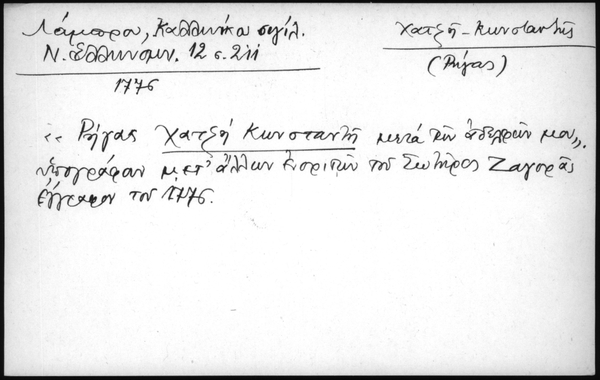 Λάμπρου, Καλλινίκου σιγίλ.
Ν. Ἑλληνομν. 12 σ. 211
1776
Χατζῆ-Κωνσταντῆς
(Ρήγας)
"Ρήγας Χατζῆ Κωνσταντῆ μετά τῶν ἀδελφῶν μου„
ὑπογράφουν μετ' ἄλλων ἐνοριτῶν τοῦ Σωτῆρος Ζαγορᾶς
ἔγγραφον τοῦ 1776.